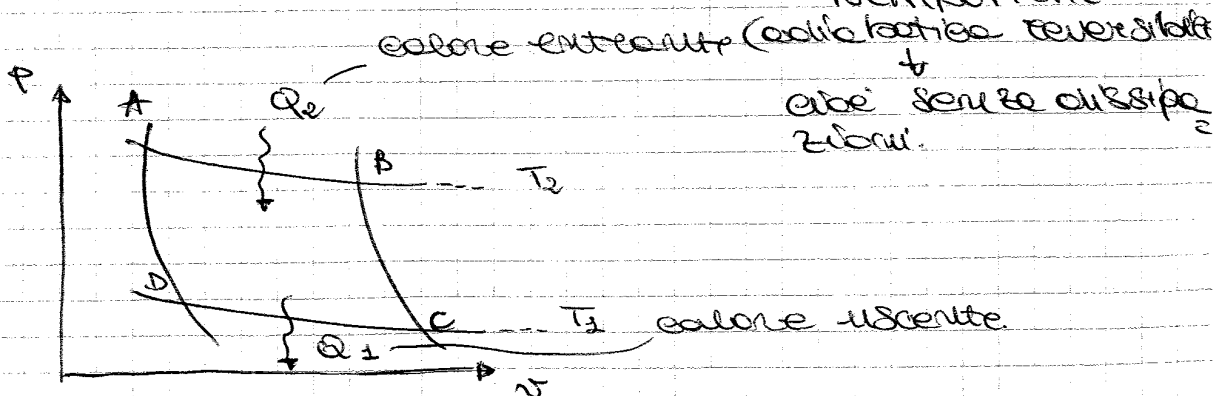 calore entrante (adiabatica reversibile
cioè senza dissipa=
zioni.
P
A
Q2
B
T2
D
C
T1 calore uscente.
Q1
v